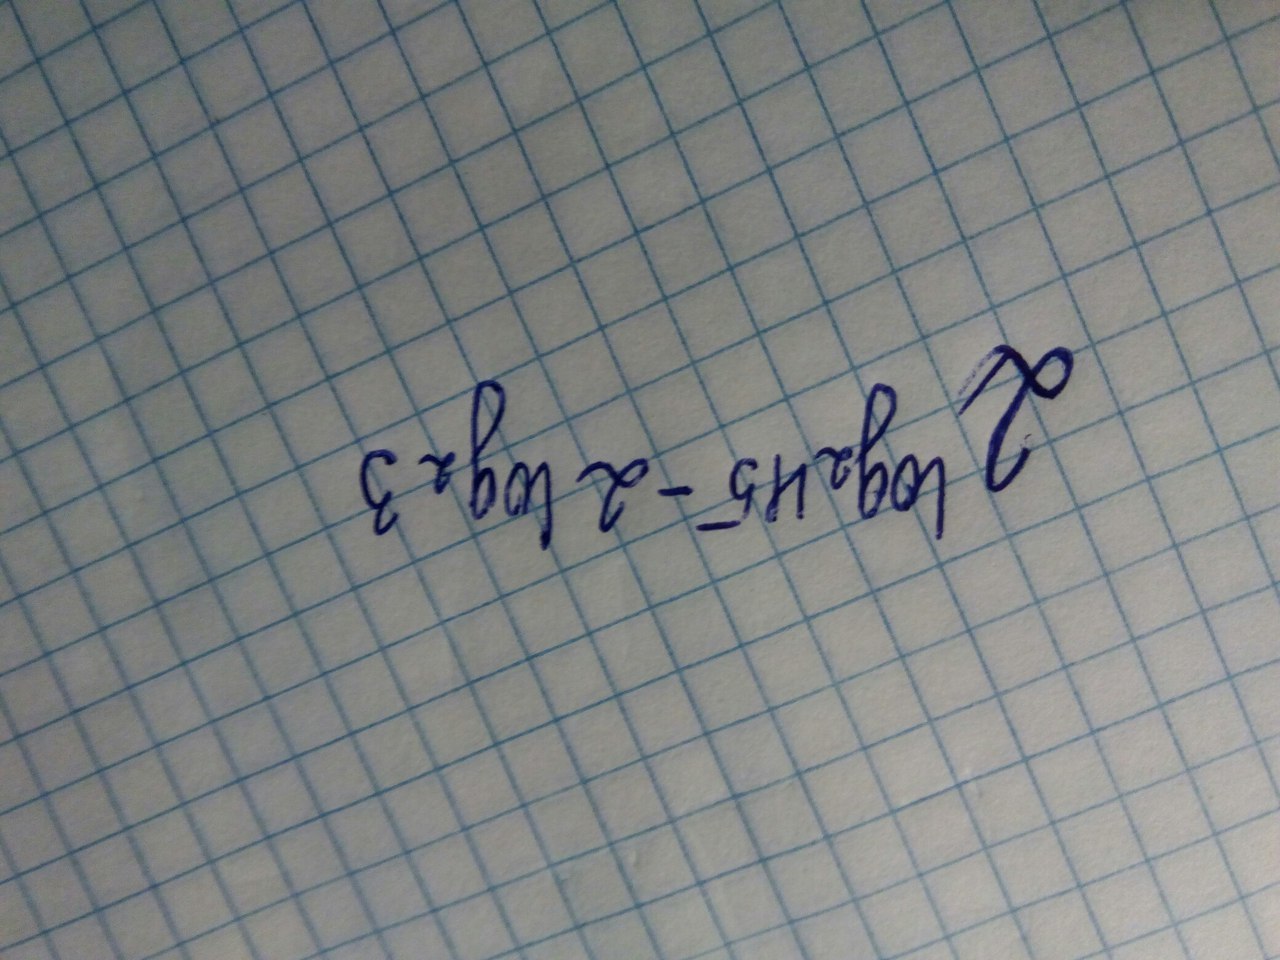 2^{log₂45 - 2log₂3}